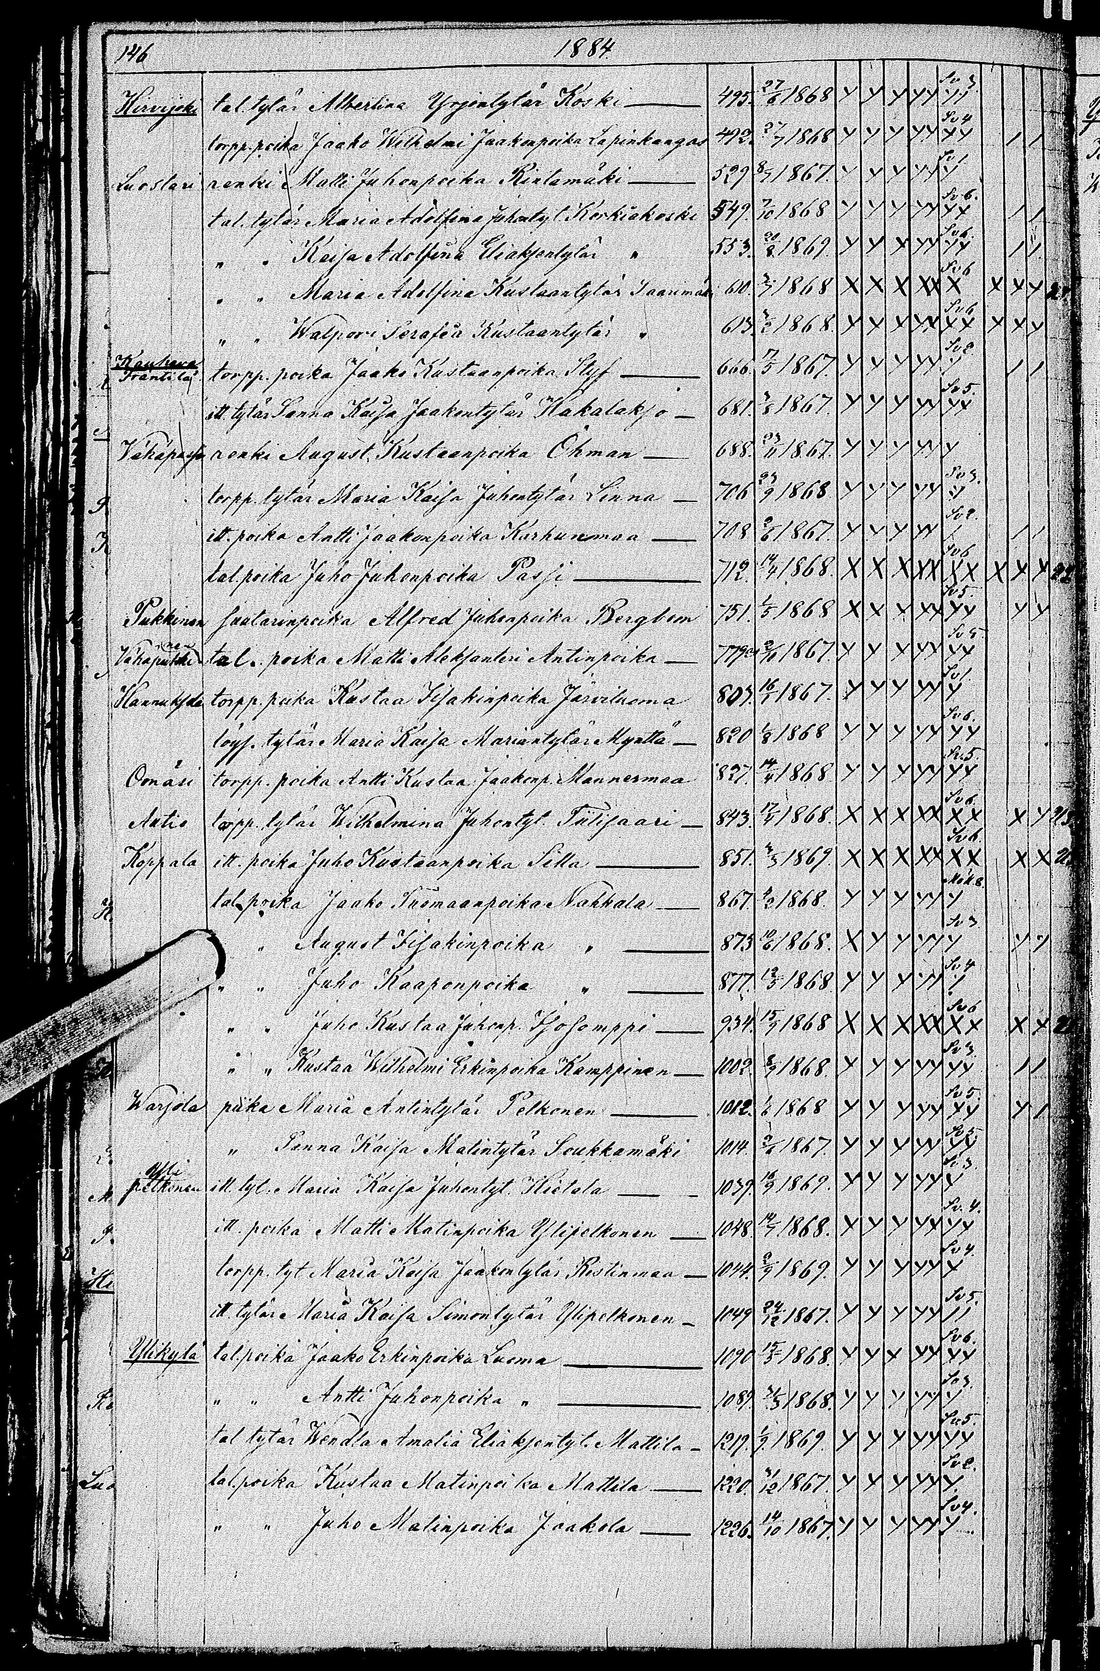 146 1884
Hirvijoki tal. tytär Albertina Yrjöntytär Koski 495. 27/6 1868 Y Y Y Y Y Sv 3. YY
torpp. poika Jaako Wilhelmi Jaakonpoika Lapinkangas 492. 27/7 1868 Y Y Y Y Y Sv 4 YY 1 1
Luostari renki Matti Juhonpoika Rintamäki 529 1867. Y Y Y Y Y Sv 1. Y
tal. tytär Maria Adolfina Juhontyt. Korkiakoski 549. 7/10 1868 Y Y Y Y Y Sv 6. YY 1 1
" " Kaisa Adolfina Eliaksentytär " 553. 1869 Y Y Y Y Y Sv 6. YY 1 1
" " Maria Adolfina Kustaantytär Saarimäki 610. 1868 X X X X X Sv 6 X X Y Y
" " Walpori Serafia Kustaantytär " 613. 1868. Y Y Y Y Y Sv 6 XX X X Y
Kauhava Präntilä torpp. poika Jaako Kustaanpoika Styf 666. 17/5 1867. Y Y Y Y Y Sv 2 Y 1 1
itt. tytär Sanna Kaisa Jaakontytär Hakalaksо 681. 1867. Y Y Y Y Y Sv 5. YX
Vähäpassi renki August Kustaanpoika Öhman 688. 1867. Y Y Y Y Y Y
torpp. tytär Maria Kaisa Juhontytär Linna 706 23/9 1868 Y Y Y Y Y Sv 3. Y
itt. poika Antti Jaakonpoika Karhunmaa 708 1867. Y Y Y Y Y Sv 2. 1 1 1
tal. poika Juho Juhonpoika Passi 712. 1868. X X X X X Sv 6 XX X X Y 22
Pukkinen suutarinpoika Alfred Juhonpoika Bergbom 751. 1/5 1868 X X X X Y Sv 5. YY Y Y
Vähäpukkinen tal. poika Matti Aleksanteri Antinpoika 779 1867. Y Y Y Y Y Sv 5 YY
Hannuksela torpp. poika Kustaa Iisakinpoika Järviluoma 803. 16/7 1867. Y Y Y Y Y Sv 1. Y
löys. tytär Maria Kaisa Mariantytär Mynttä 820 1/8 1868 Y Y Y Y Y Sv 6. YY
Ojonäsi torpp. poika Antti Kustaa Jaakonp. Mannermaa 827. 14/4 1868 Y Y Y Y Y Sv 5. YY
Autio torpp. tytär Wilhelmina Juhontyt. Tulisaari 843. 17/8 1868. X X X X X Sv 6. XX X Y 23
Koppala itt. poika Juho Kustaanpoika Silla 851. 1869 X X X X X Sv 6 XX X X
tal. poika Jaako Tuomaanpoika Nahkala 867. 1868. Y Y Y Y Y Y
" August Iisakinpoika " 873 1868. X Y Y Y Y Sv 3 Y Y Y
" " Juho Kaaponpoika " 877. 13/5 1868 Y Y Y Y Y Sv 4 Y
" " Juho Kustaa Juhonp. Isosomppi 934. 15/7 1868 X X X X X Sv 6 XX X X
" " Kustaa Wilhelmi Erkinpoika Kamppinen 1002. 1868. Y Y Y Y Y Sv 3. YY 1 1
Warjola piika Maria Antintytär Pelkonen 1012. 1/6 1868 Y Y Y Y Y Sv 5. YY Y 1
" Sanna Kaisa Matintytär Soukkamäki 1014. 1867. Y Y Y Y Y Sv 5 YX
Yli pelkonen itt. tyt. Maria Kaisa Juhontyt. Hietala 1039. 16/9 1869. Y Y Y Y Y Sv 3. Y
itt. poika Matti Matinpoika Ylipelkonen 1048. 14/7 1868. X Y Y Y Y Sv. 4. YY
torpp. tyt. Maria Kaisa Jaakontytär Ristinmaa 1044. 1869. Y Y Y Y Y Sv 4. Y
itt. tytär Maria Kaisa Simontytär Ylipelkonen 1049 24/12 1867. Y Y Y Y Y Sv 5. YY
Ylikylä tal. poika Jaako Erkinpoika Luoma 1090 15/3 1868. Y Y X Y Y Sv 6. YY
" " Antti Juhonpoika " 1089. 31/3 1868. Y Y Y Y Y Sv 3. Y
tal tytär Wendla Amalia Eliaksentyt. Mattila 1217. 1/9 1869. Y Y Y Y Y Sv 5. YY
tal. poika Kustaa Matinpoika Mattila 1220. 31/12 1867. Y Y Y Y Y Sv 2. Y
" " Juho Matinpoika Jaakola 1226. 14/10 1867. Y Y Y Y Y Sv 4. Y